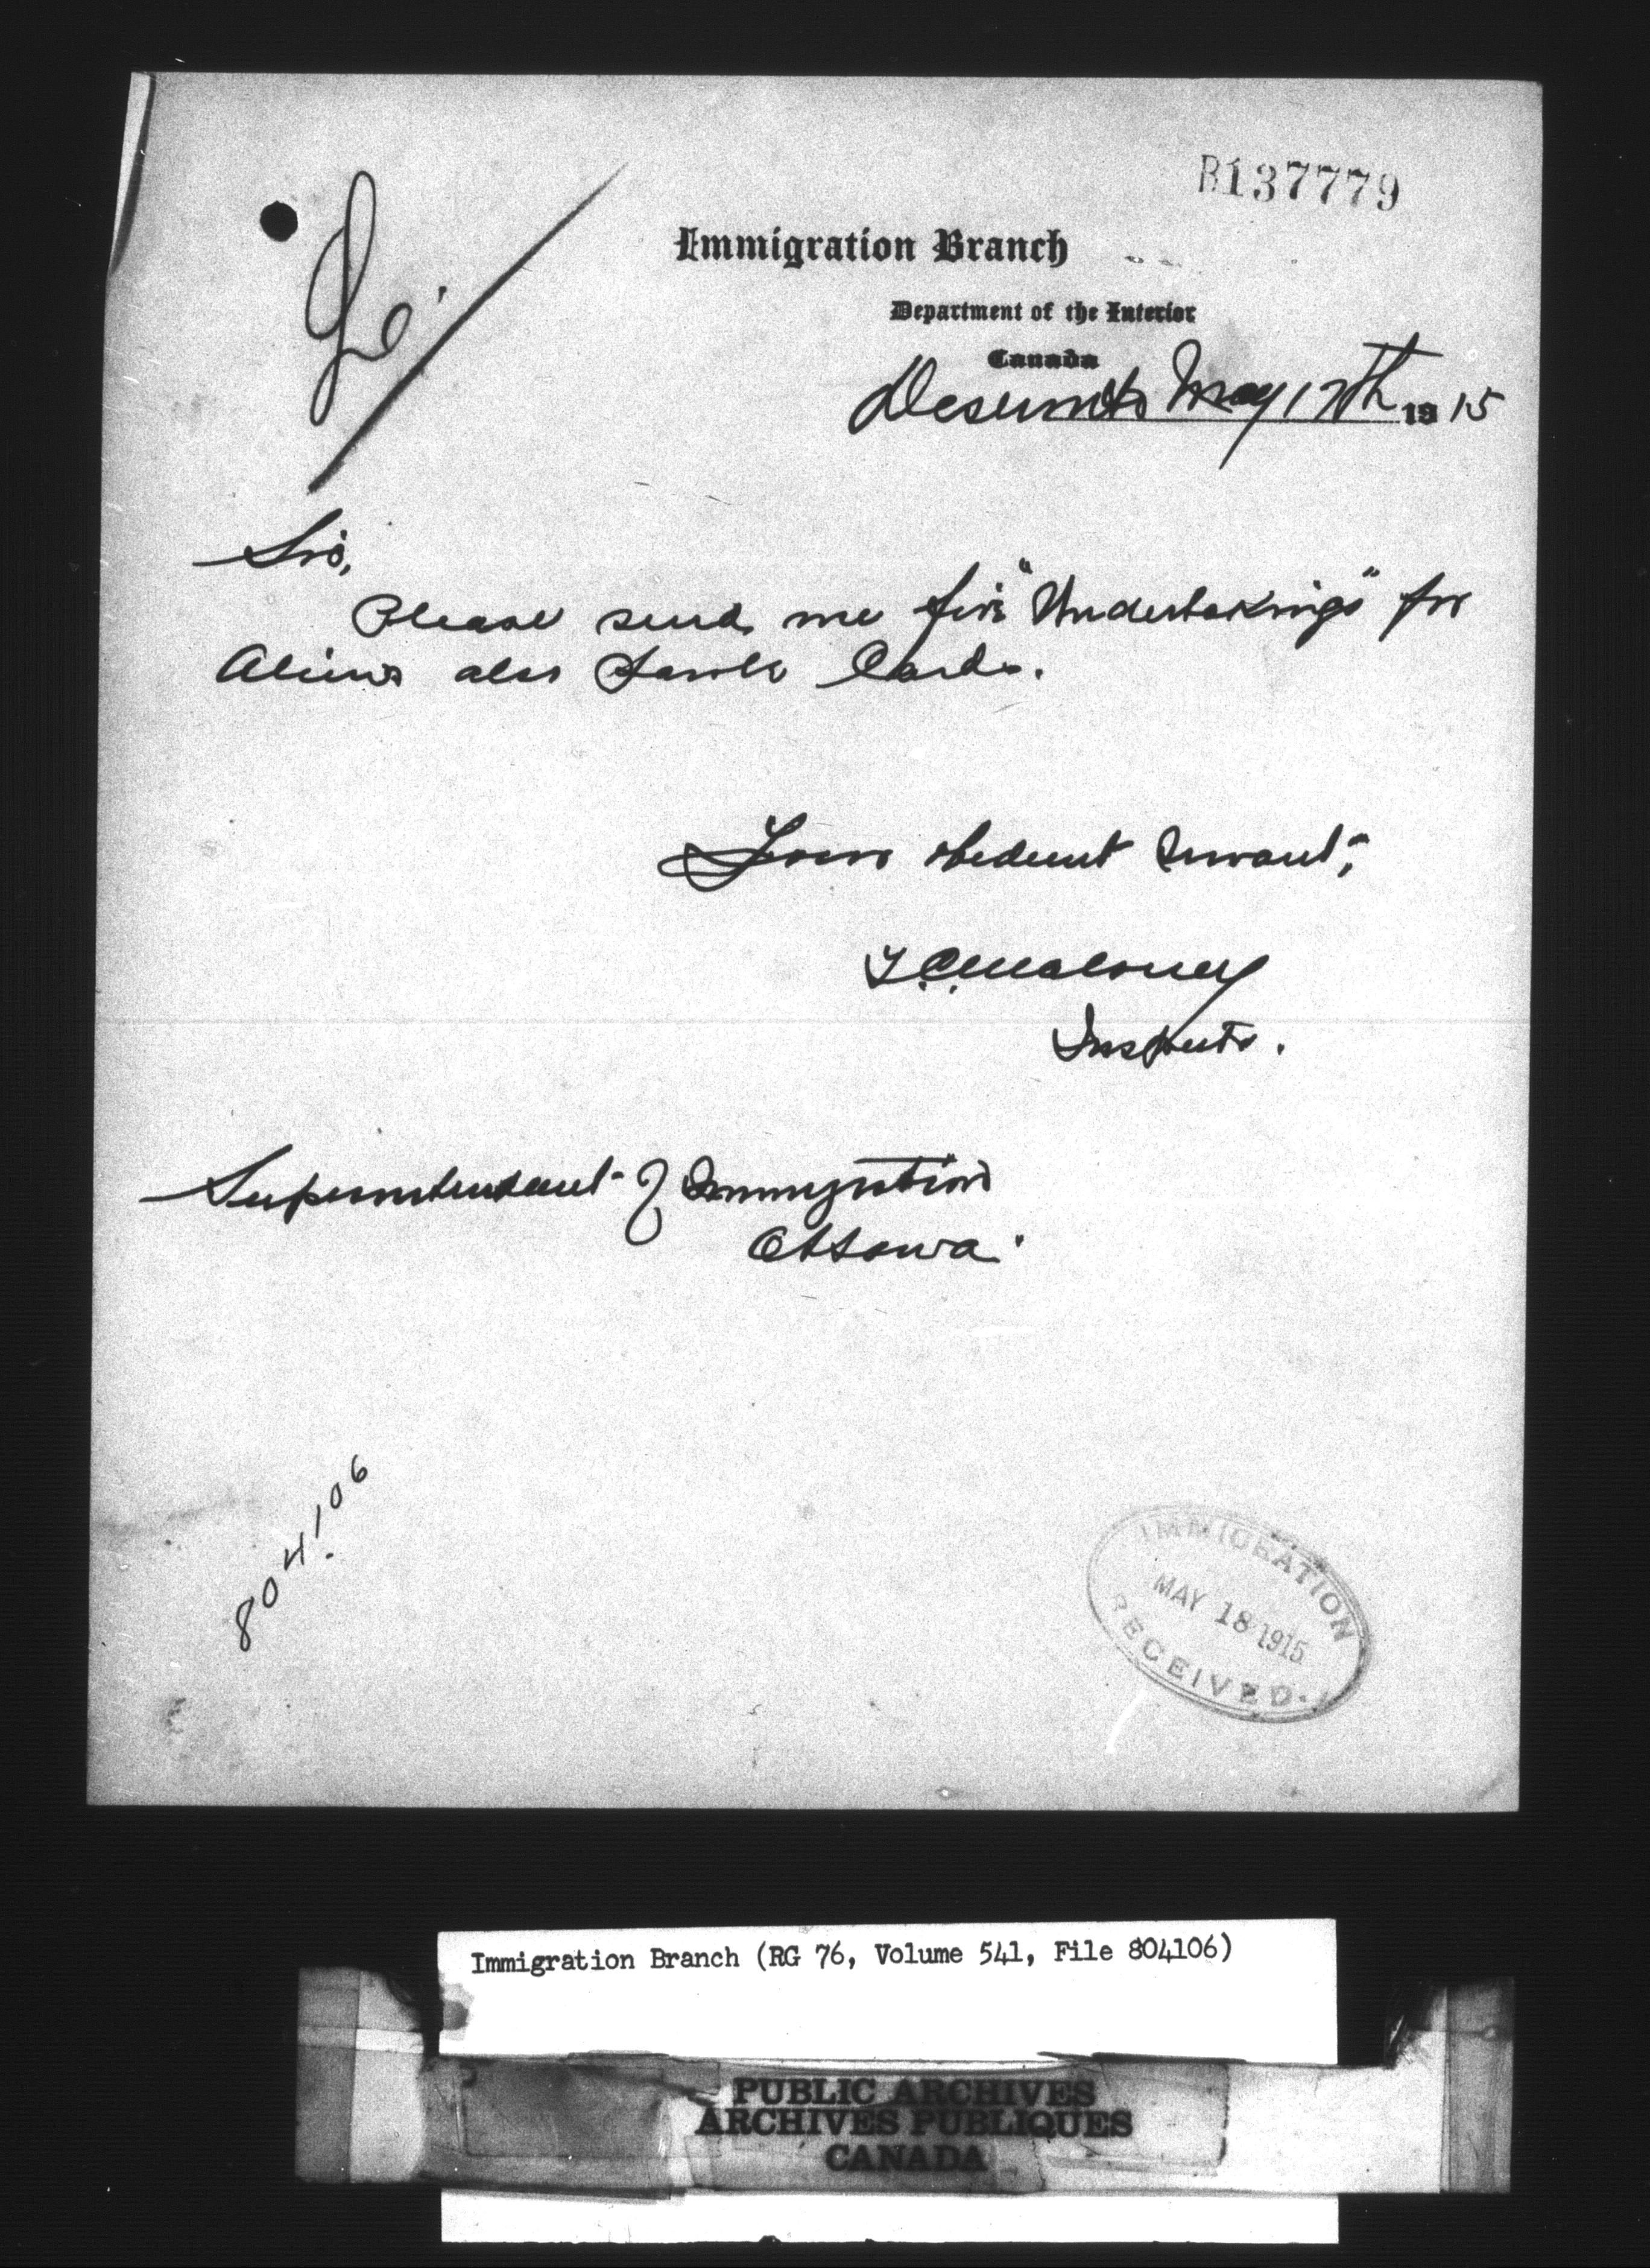 B137779
Immigration Branch
Department of the Interior
Canada
Deseronto May 17th 1915
Sir,
Please send me five "Undertakings" for
Aliens also Parole Cards.
Your obedient Servant,
Maloney
Inspector.
Superintendent of Immigration
Ottawa.
804106
IMMIGRATION
MAY 18 1915
RECEIVED.
Immigration Branch (RG 76, Volume 541, File 804106)
PUBLIC ARCHIVES
ARCHIVES PUBLIQUES
CANADA